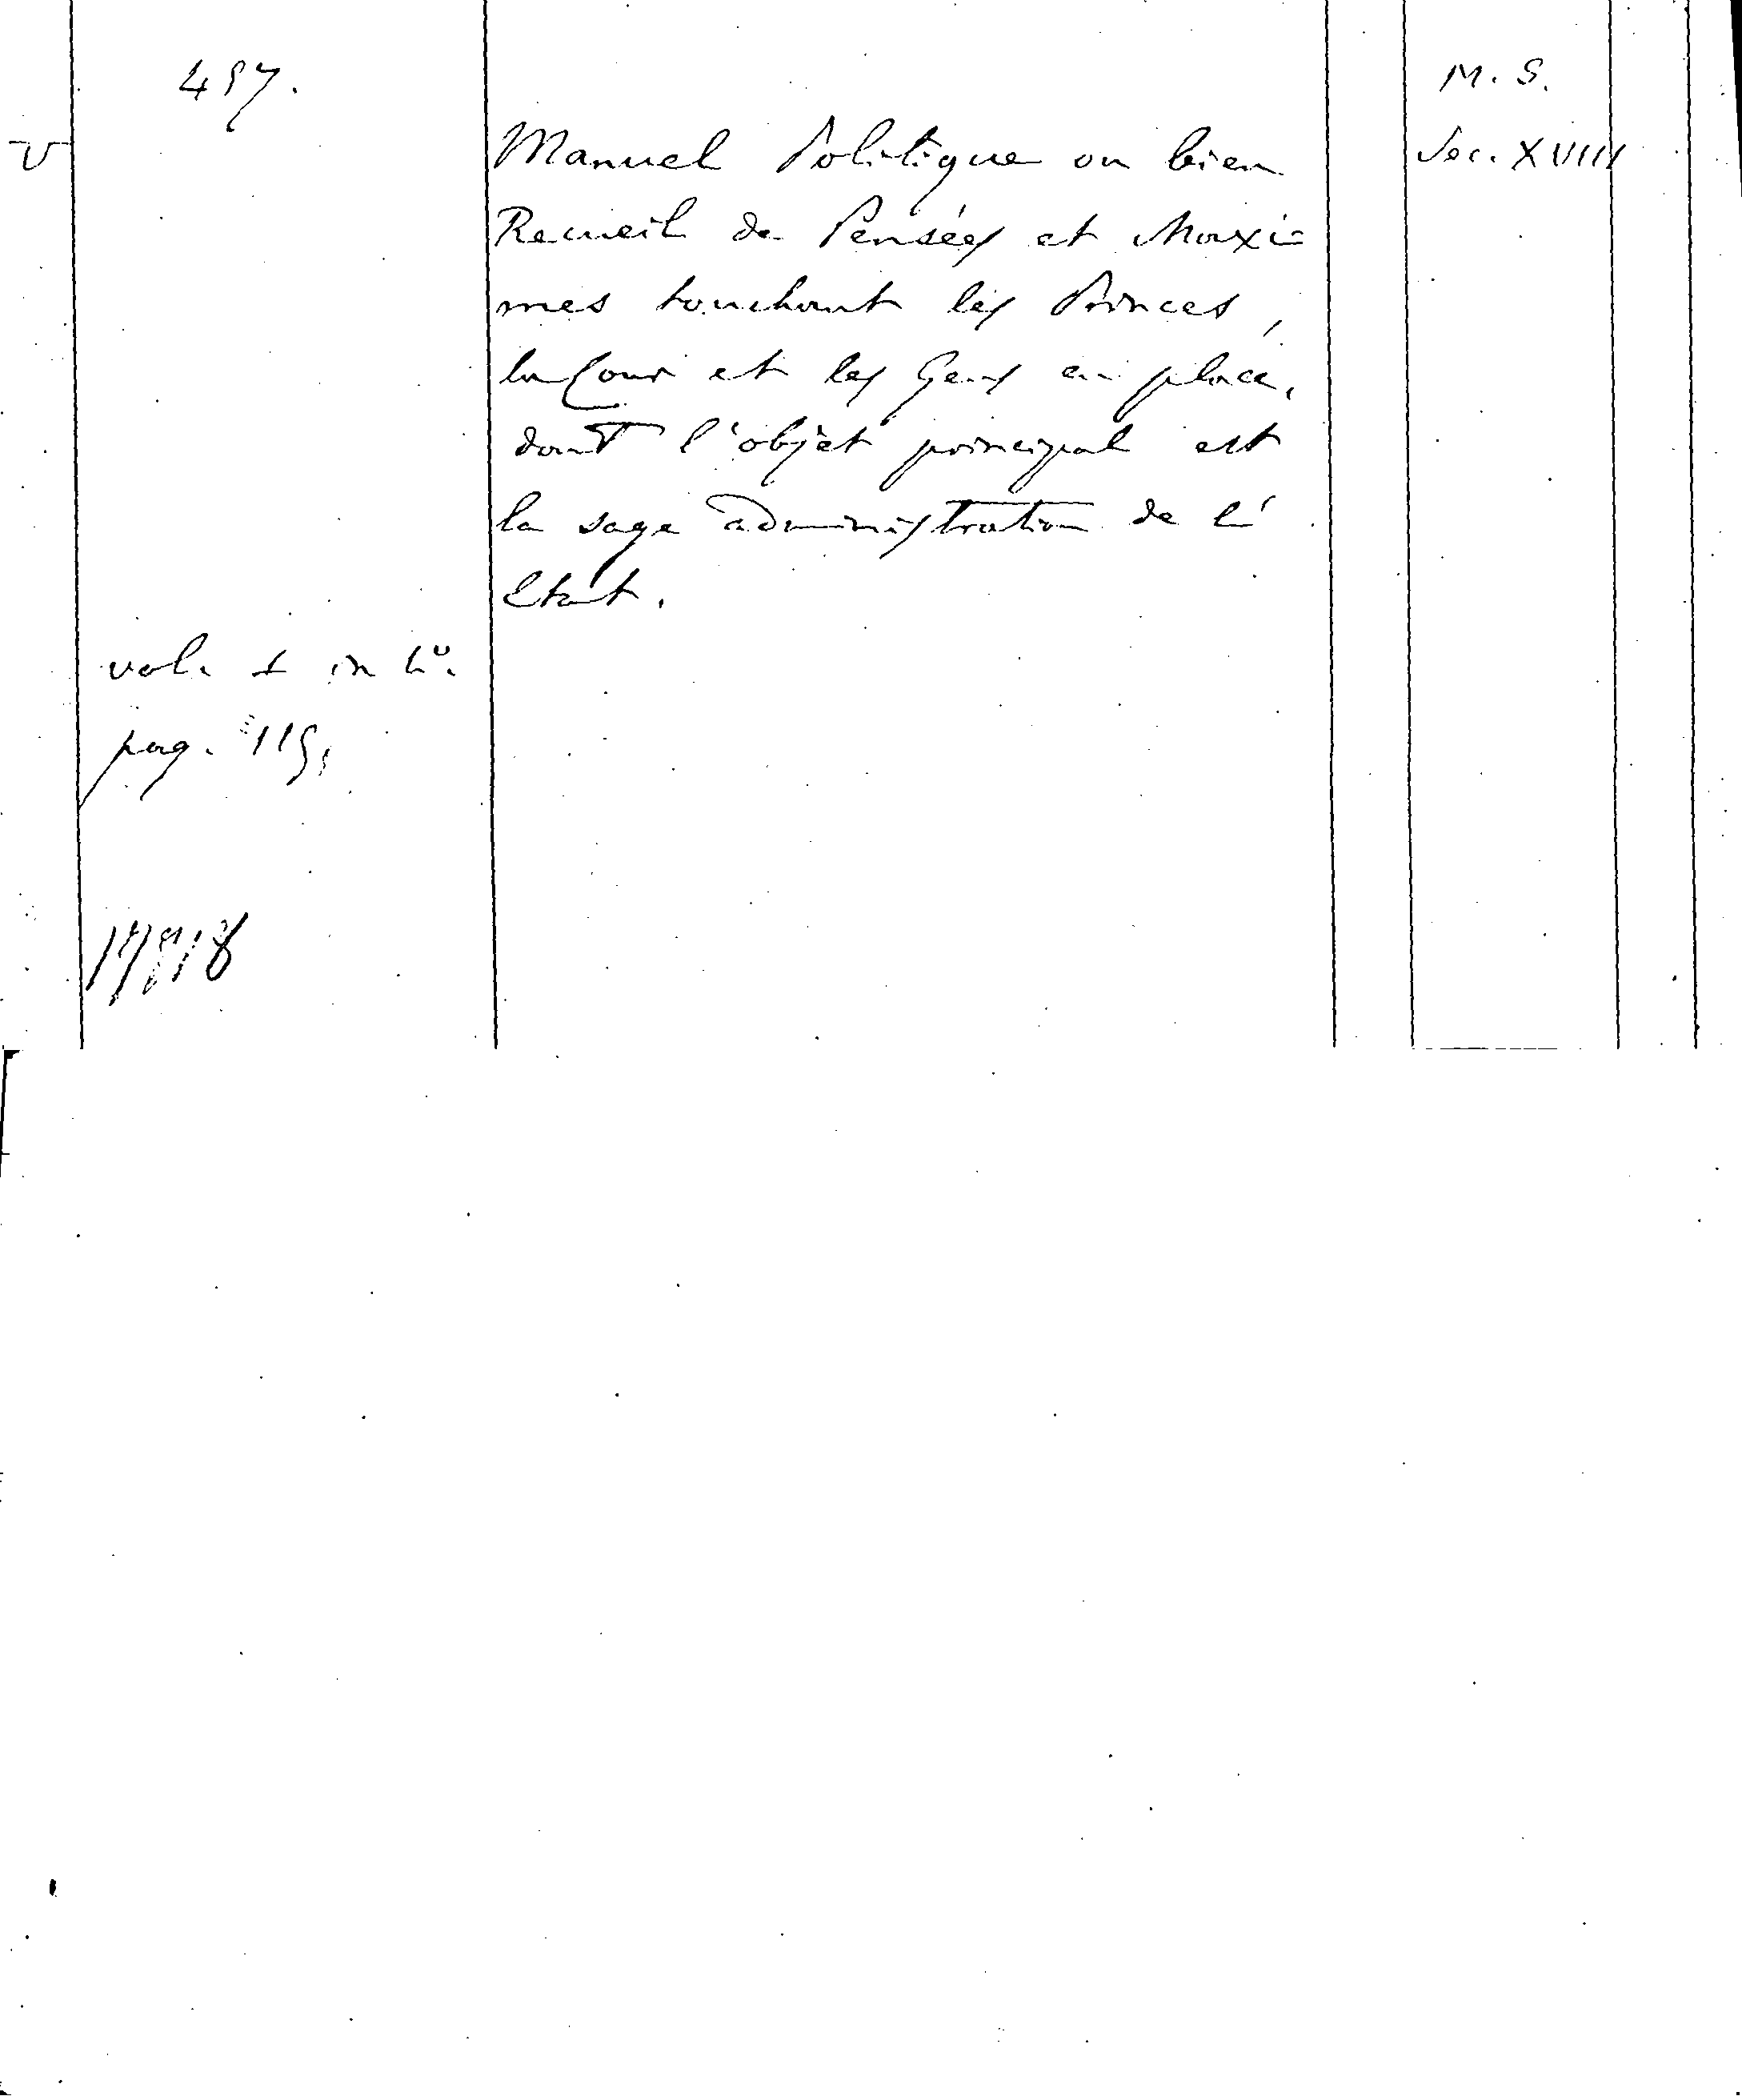 457.
M. S.
V
Manuel Politique ou bien
Sec. XVIII
Recueil de Pensées et Maxi=
mes touchant les Princes,
la Cour et les Gens en place,
dont l'objet principal est
la sage administration de l'
Etat.
vol. 1 in 4º.
pag. 115,